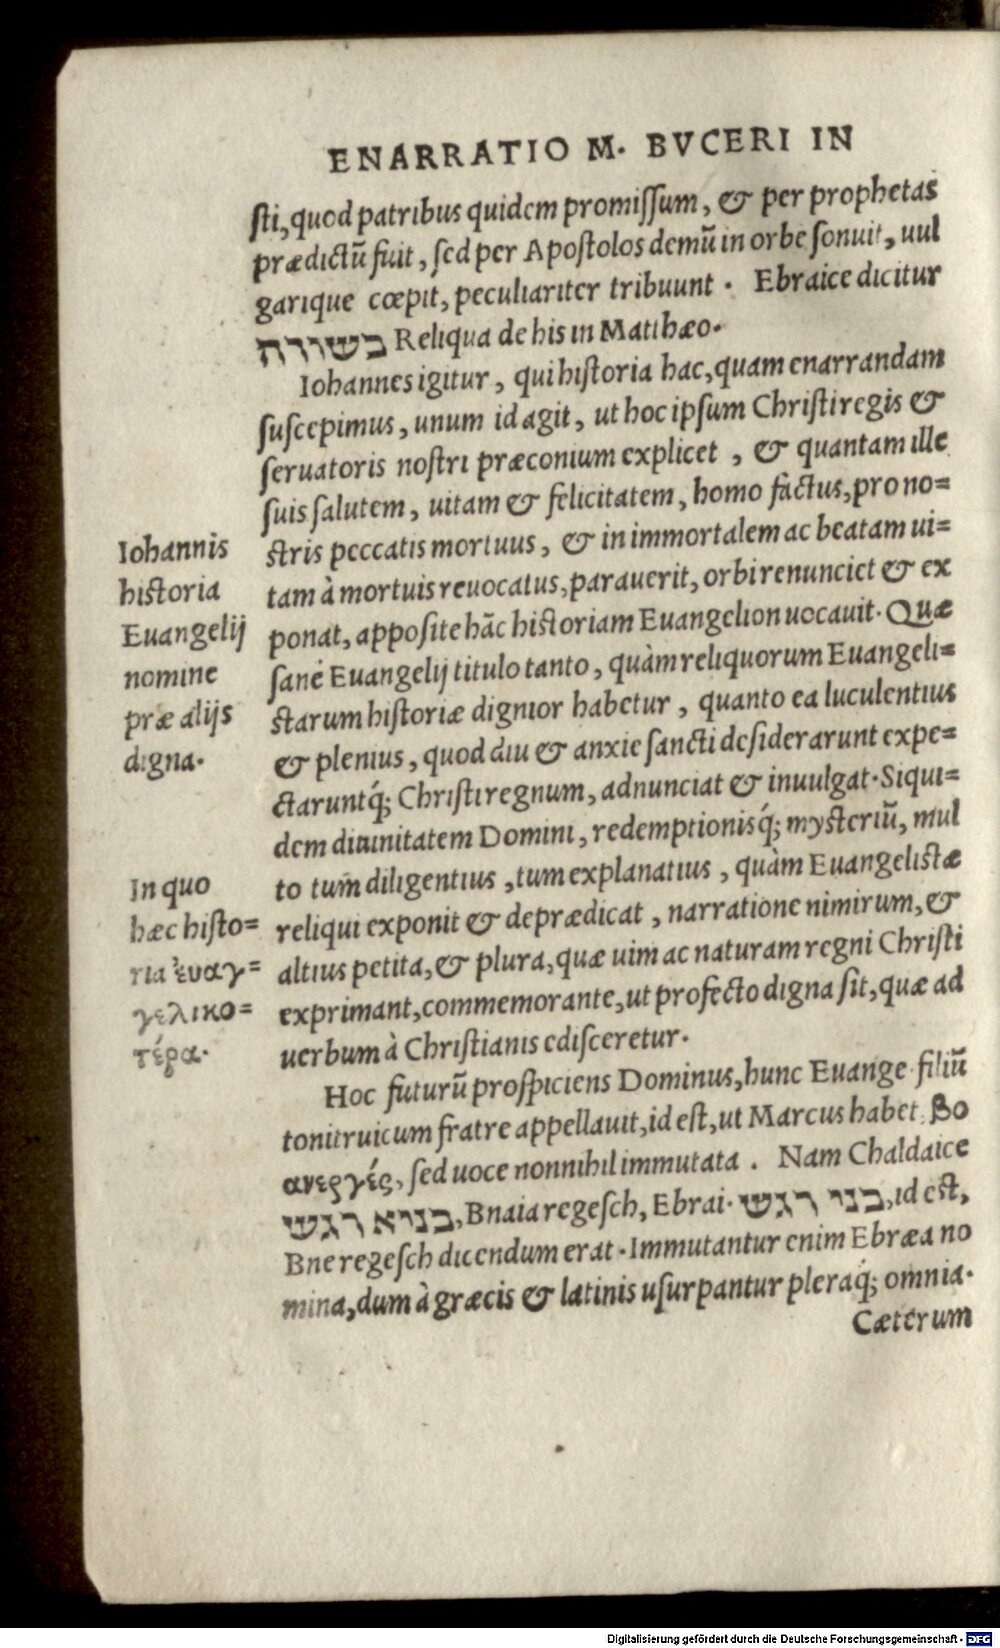 ENARRATIO M. BVCERI IN
sti, quod patribus quidem promissum, & per prophetas
prædictū fuit, sed per Apostolos demū in orbe sonuit, uul
garique cœpit, peculiariter tribuunt. Ebraice dicitur
בשורה Reliqua de his in Matthæo.
Iohannes igitur, qui historia hac, quam enarrandam
suscepimus, unum id agit, ut hoc ipsum Christi regis &
seruatoris nostri præconium explicet, & quantam ille
suis salutem, uitam & felicitatem, homo factus, pro no=
stris peccatis mortuus, & in immortalem ac beatam ui=
tam à mortuis reuocatus, parauerit, orbi renunciet & ex
ponat, apposite hāc historiam Euangelion uocauit. Quæ
sanè Euangelij titulo tanto, quàm reliquorum Euangeli=
starum historiæ dignior habetur, quanto ea luculentius
& plenius, quod diu & anxie sancti desiderarunt expe=
ctaruntq́;, Christi regnum, adnunciat & inuulgat. Siqui=
dem diuinitatem Domini, redemptionisq́; mysteriū, mul
to tum diligentius, tum explanatius, quàm Euangelistæ
reliqui exponit & deprædicat, narratione nimirum, &
altius petita, & plura, quæ uim ac naturam regni Christi
exprimant, commemorante, ut profecto digna sit, quæ ad
uerbum à Christianis edisceretur.
Hoc futurū prospiciens Dominus, hunc Euange. filiū
tonitrui cum fratre appellauit, id est, ut Marcus habet. βο
ανεργές, sed uoce nonnihil immutata. Nam Chaldaice
בניא רגשי, Bnaia regesch, Ebrai. בני רגשי, id est,
Bne regesch dicendum erat. Immutantur enim Ebræa no
mina, dum à græcis & latinis usurpantur pleraq́; omnia.
Cæterum
Iohannis
historia
Euangelij
nomine
præ alijs
digna.
In quo
hæc histo=
ria ἐυαγ=
γελικο=
τέρα.
Digitalisierung gefördert durch die Deutsche Forschungsgemeinschaft - DFG